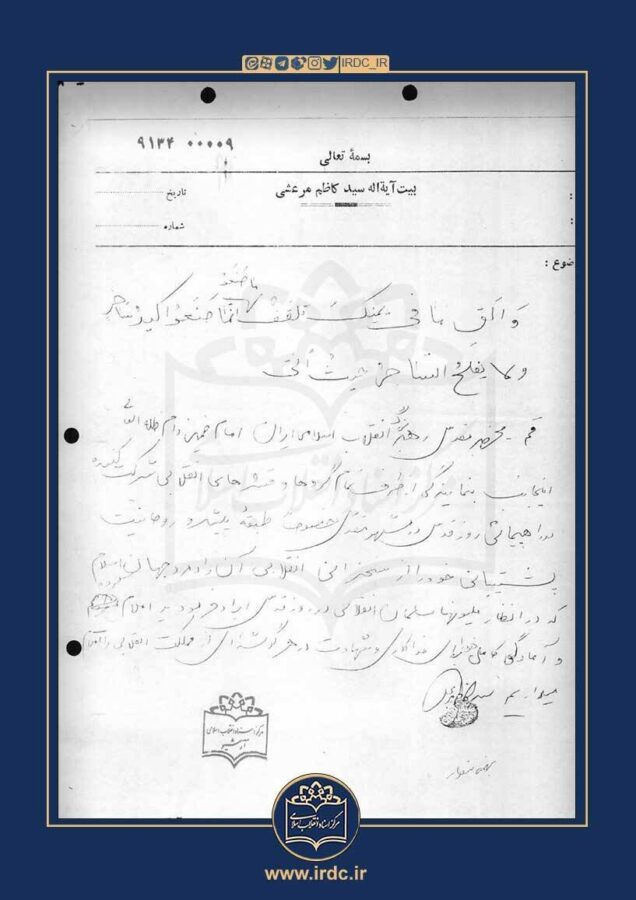 IRDC_IR
۹۱۳۴ ۰۰۰۰۹
بسمهٔ تعالی
بیت آیةاله سید کاظم مرعشی
تاریخ
شماره
ضوع :
ما صنعوا
و الق ما فی یمینک تلقف انما صنعوا کید ساحر
ولا یفلح الساحر حیث اتی
قم - محضر مقدس رهبر انقلاب اسلامی ایران امام خمینی دام ظله العالی
اینجانب بنمایندگی از طرف تمام گروهها و قشرهای انقلابی شرکت کننده
در راهپیمائی روز قدس در مشهد مقدس خصوصاً طبقهٔ روحانیت
پشتیبانی خود را از سخنرانی انقلابی آن رادمرد جهان اسلام
که در انظار ملیونها مسلمان انقلابی در روز قدس ایراد فرمودید اعلام
و آمادگی کامل برای فداکاری و شهادت در هر گوشه‌ای از مملکت انقلابی را اعلام
میداریم
مرکز اسناد انقلاب اسلامی
مرکز اسناد انقلاب اسلامی
www.irdc.ir